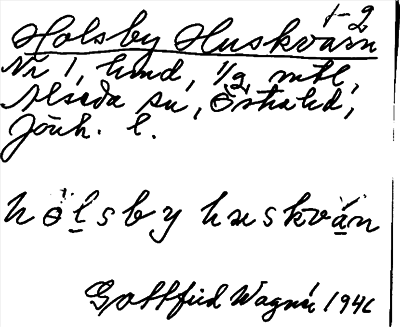 1-2
Holsby Huskvarn
Nr 1, hmd, 1/2 mtl,
Alseda sn, Östra hd,
Jönk. l.
hölsby huskván
Gottfrid Wagnér 1946